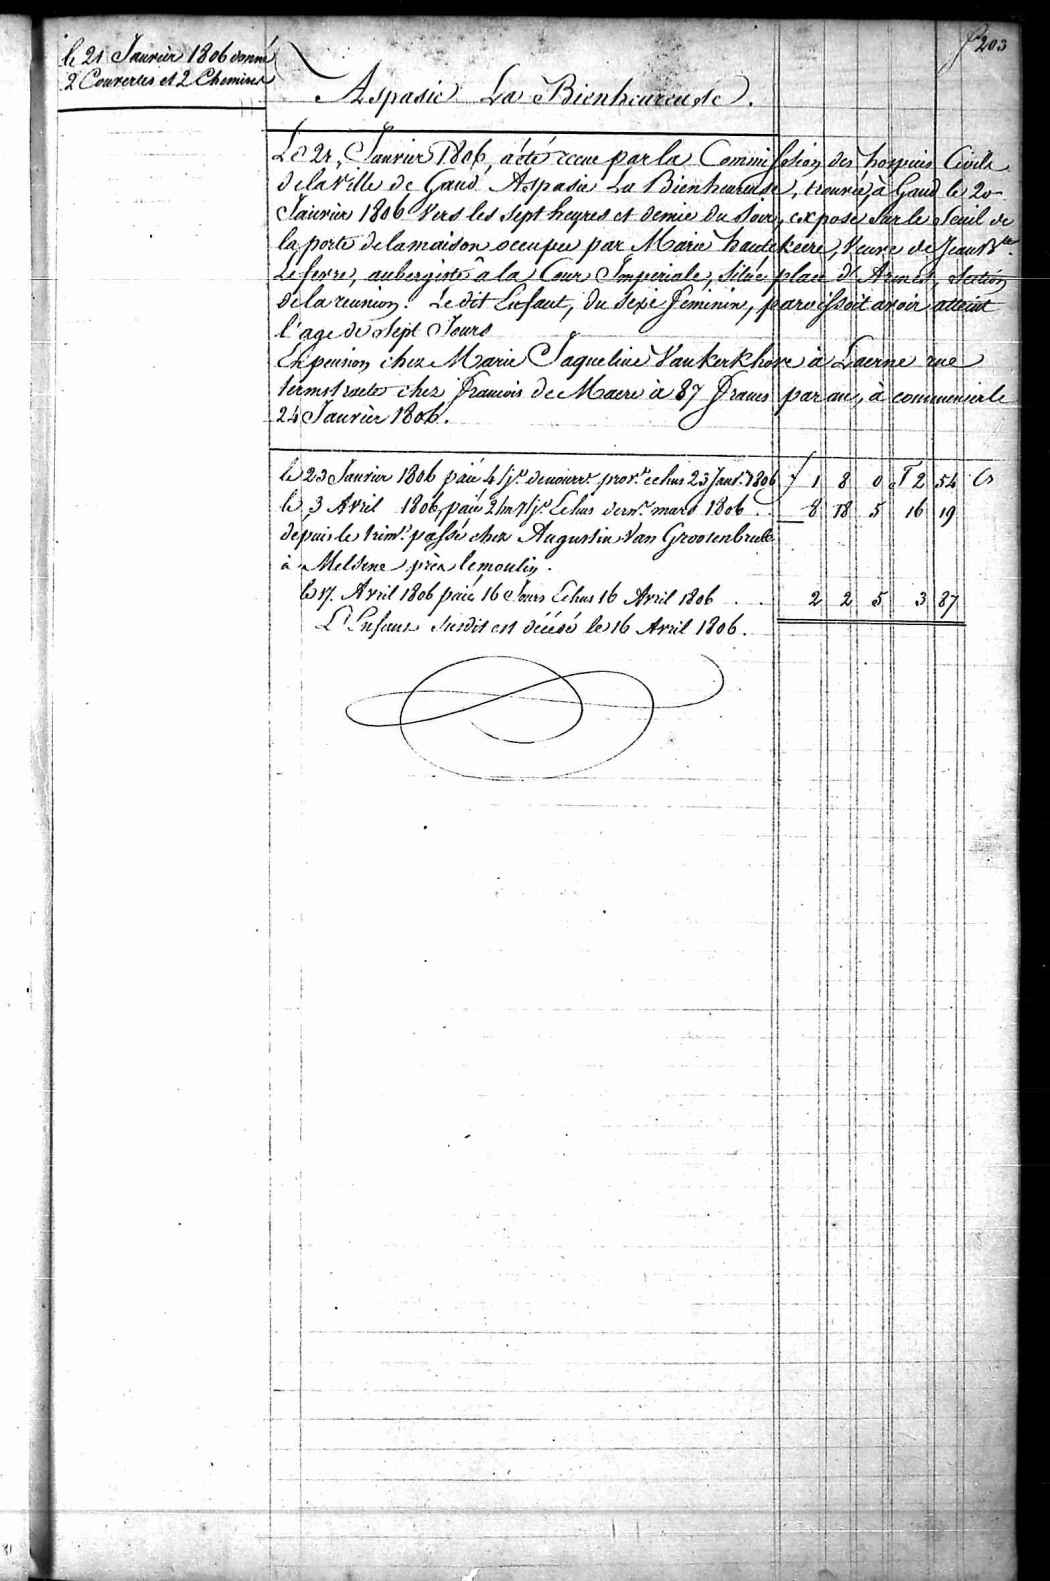 f° 203
le 21 Janvier 1806 donné
2 Couvertes et 2 Chemises
Aspasie La Bienheureuse.
Le 21, Janvier 1806, a été recue par la Commission des hospices Civils
de la Ville de Gand Aspasie La Bienheureuse, trouvée à Gand le 20
Janvier 1806 vers les sept heures et demie du Soir, exposé sur le Seuil de
la porte de la maison occupée par Marie hautekeere, Veuve de Jean Bte
Lefevre, aubergiste à la Cour Imperiale, située place d'Armes, Section
de la reunion. Le dit Enfant, du Sexe feminin, paroissoit avoir atteint
l'age de Sept Jours
En pension chez Marie Jaqueline Vankerkhove à Laerne rue
termstraete chez Francois de Maere à 87 Francs par an, à commencer le
24 Janvier 1806.
le 23 Janvier 1806 paié 4 Jrs de nourre prove echus 23 Janv. 1806 f 1 8 0 F 2 54 Cs
le 3 Avril 1806 paié 2 m 7 jrs Echus derne mars 1806 . 8 18 5 16 19
depuis le trimre passé chez Augustin Van Grootenbrul
à Melsene près le moulin.
le 17. Avril 1806 paié 16 Jours Echus 16 Avril 1806 . . 2 2 5 3 87
L'Enfant susdit est décédé le 16 Avril 1806.